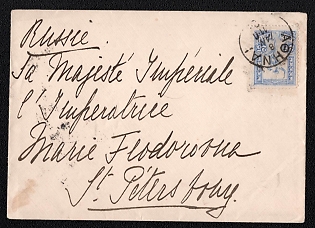 Russie.
Sa Majesté Impériale
l'Impératrice
Marie Feodorovna
St. Pétersbourg.
ΑΘΗΝΑΙ